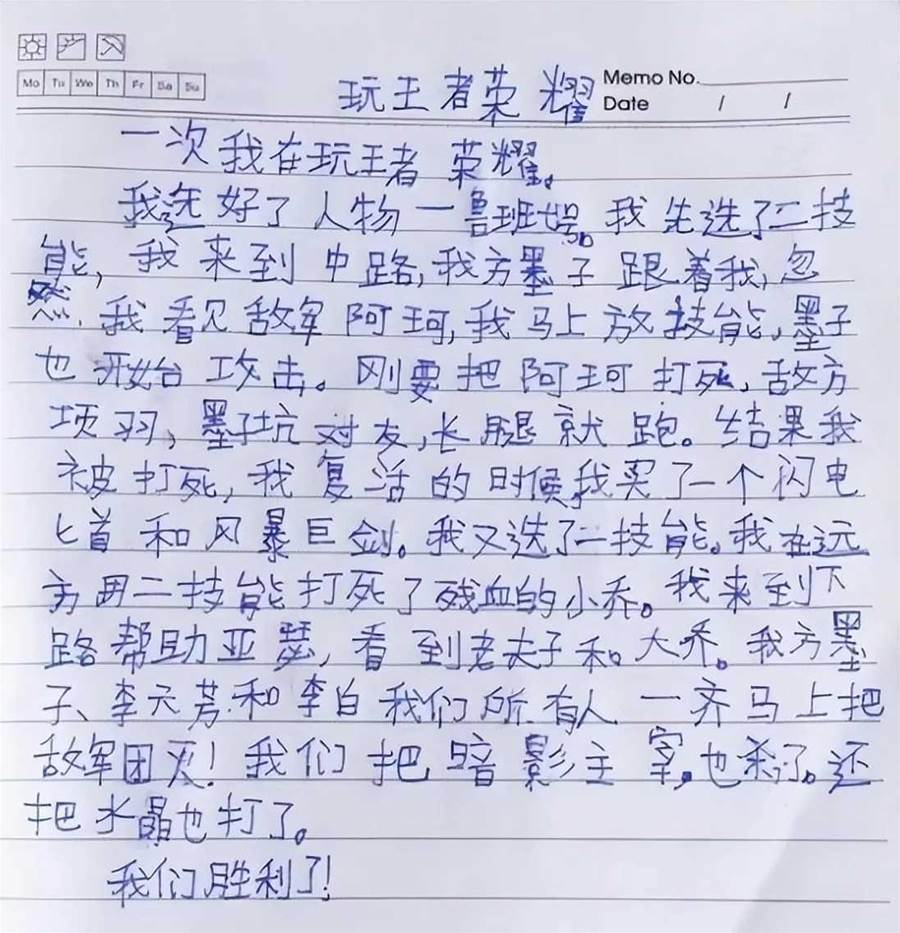 Mo Tu We Th Fr Sa Su
Memo No.
Date / /
玩王者荣耀
一次我在玩王者荣耀。
我选好了人物一鲁班七号。我先选了二技
能，我来到中路，我方墨子跟着我，忽
然，我看见敌军阿珂，我马上放技能，墨子
也开始攻击。刚要把阿珂打死，敌方
项羽，墨子坑对友，长腿就跑。结果我
被打死，我复活的时候，我买了一个闪电
匕首和风暴巨剑。我又选了二技能。我在远
方用二技能打死了残血的小乔。我来到下
路帮助亚瑟，看到老夫子和大乔。我方墨
子、李元芳和李白我们所有人一齐马上把
敌军团灭！我们把暗影主宰，也杀了。还
把水晶也打了。
我们胜利了！